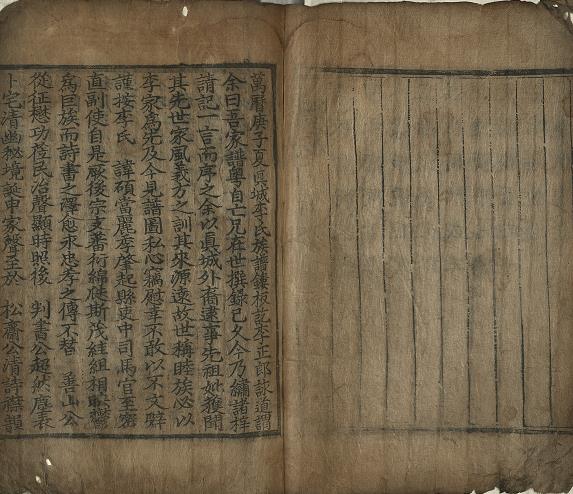 萬曆庚子夏眞城李氏族譜鏤板訖李正郎詠道謂
余曰吾家譜粤自亡兄在世撰錄已久今乃繡諸梓
請記一言而序之余以眞城外裔逮事先祖妣獲聞
其先世家風義方之訓其來源遠故世稱睦族必以
李家爲先及今見譜圖私心竊慰幸不敢以不文辭
謹按李氏 諱碩當麗季肇起縣吏中司馬官至密
直副使自是厥後宗支蕃衍綿延斯茂結組相聯鬱
爲巨族而詩書之澤愈永忠孝之傳不替 善山公
從征懋功莅民治聲顯時照後 判書公超然塵表
卜宅淸幽秘境誕申家聲至於 松齋公淸詩襟韻